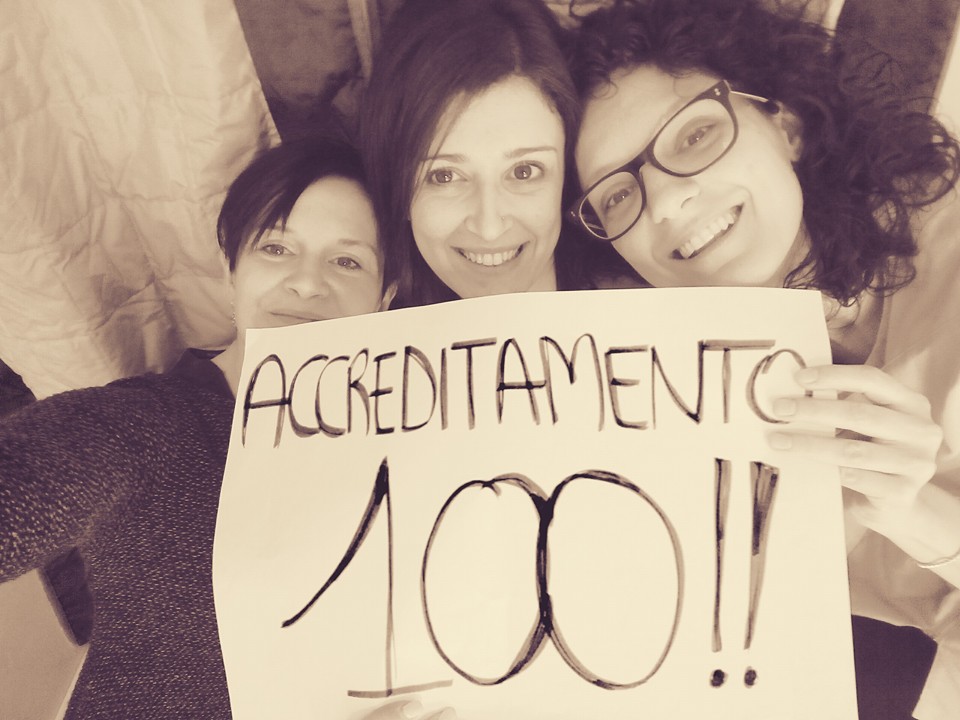 ACCREDITAMENTO
100!!